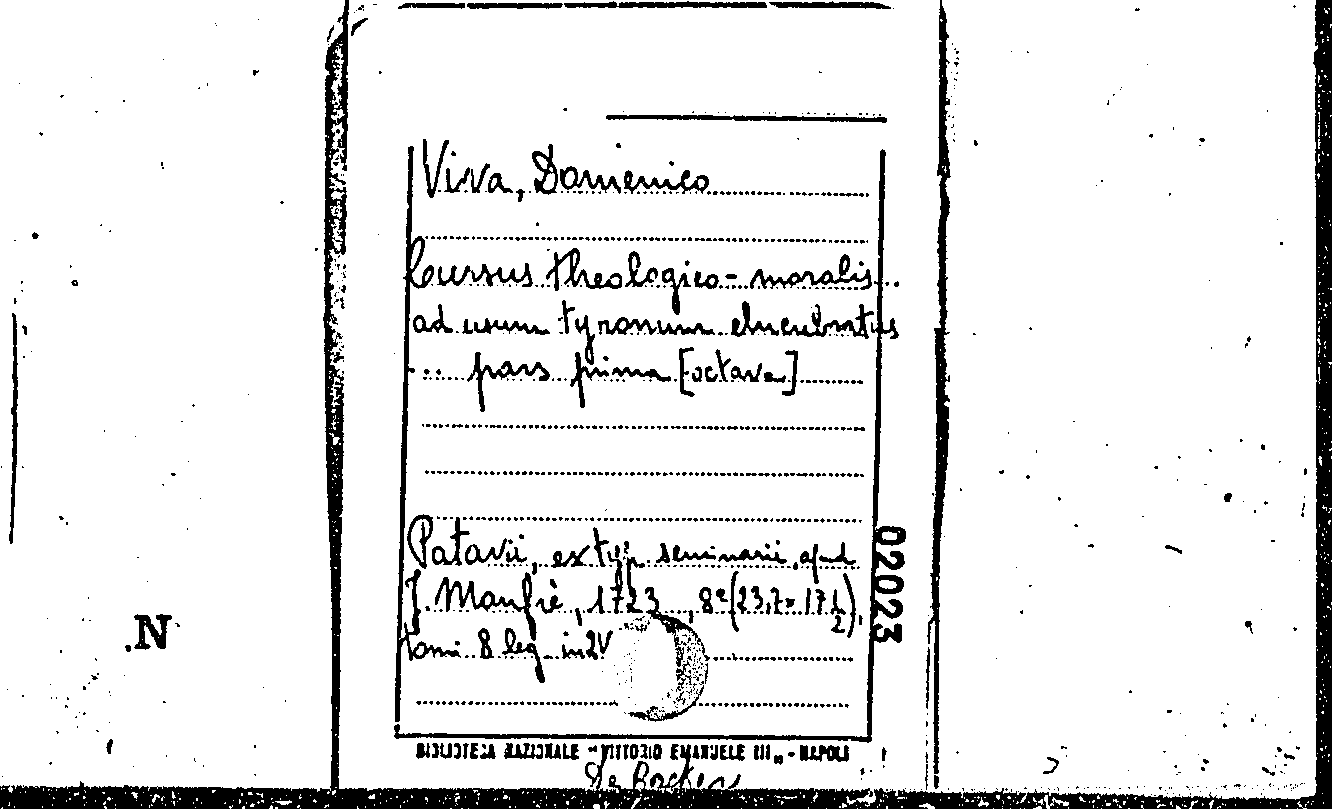 Viva, Domenico
Cursus theologico-moralis...
ad usum tyronum elucubratus
... pars prima [octava]
Patavii, ex typ. seminarii, apud
J. Manfrè, 1723, 8º (23,7 × 17 1/2),
tomi 8 leg. in 2 V
02023
.N
BIBLIOTECA NAZIONALE "VITTORIO EMANUELE III" - NAPOLI
De Backer